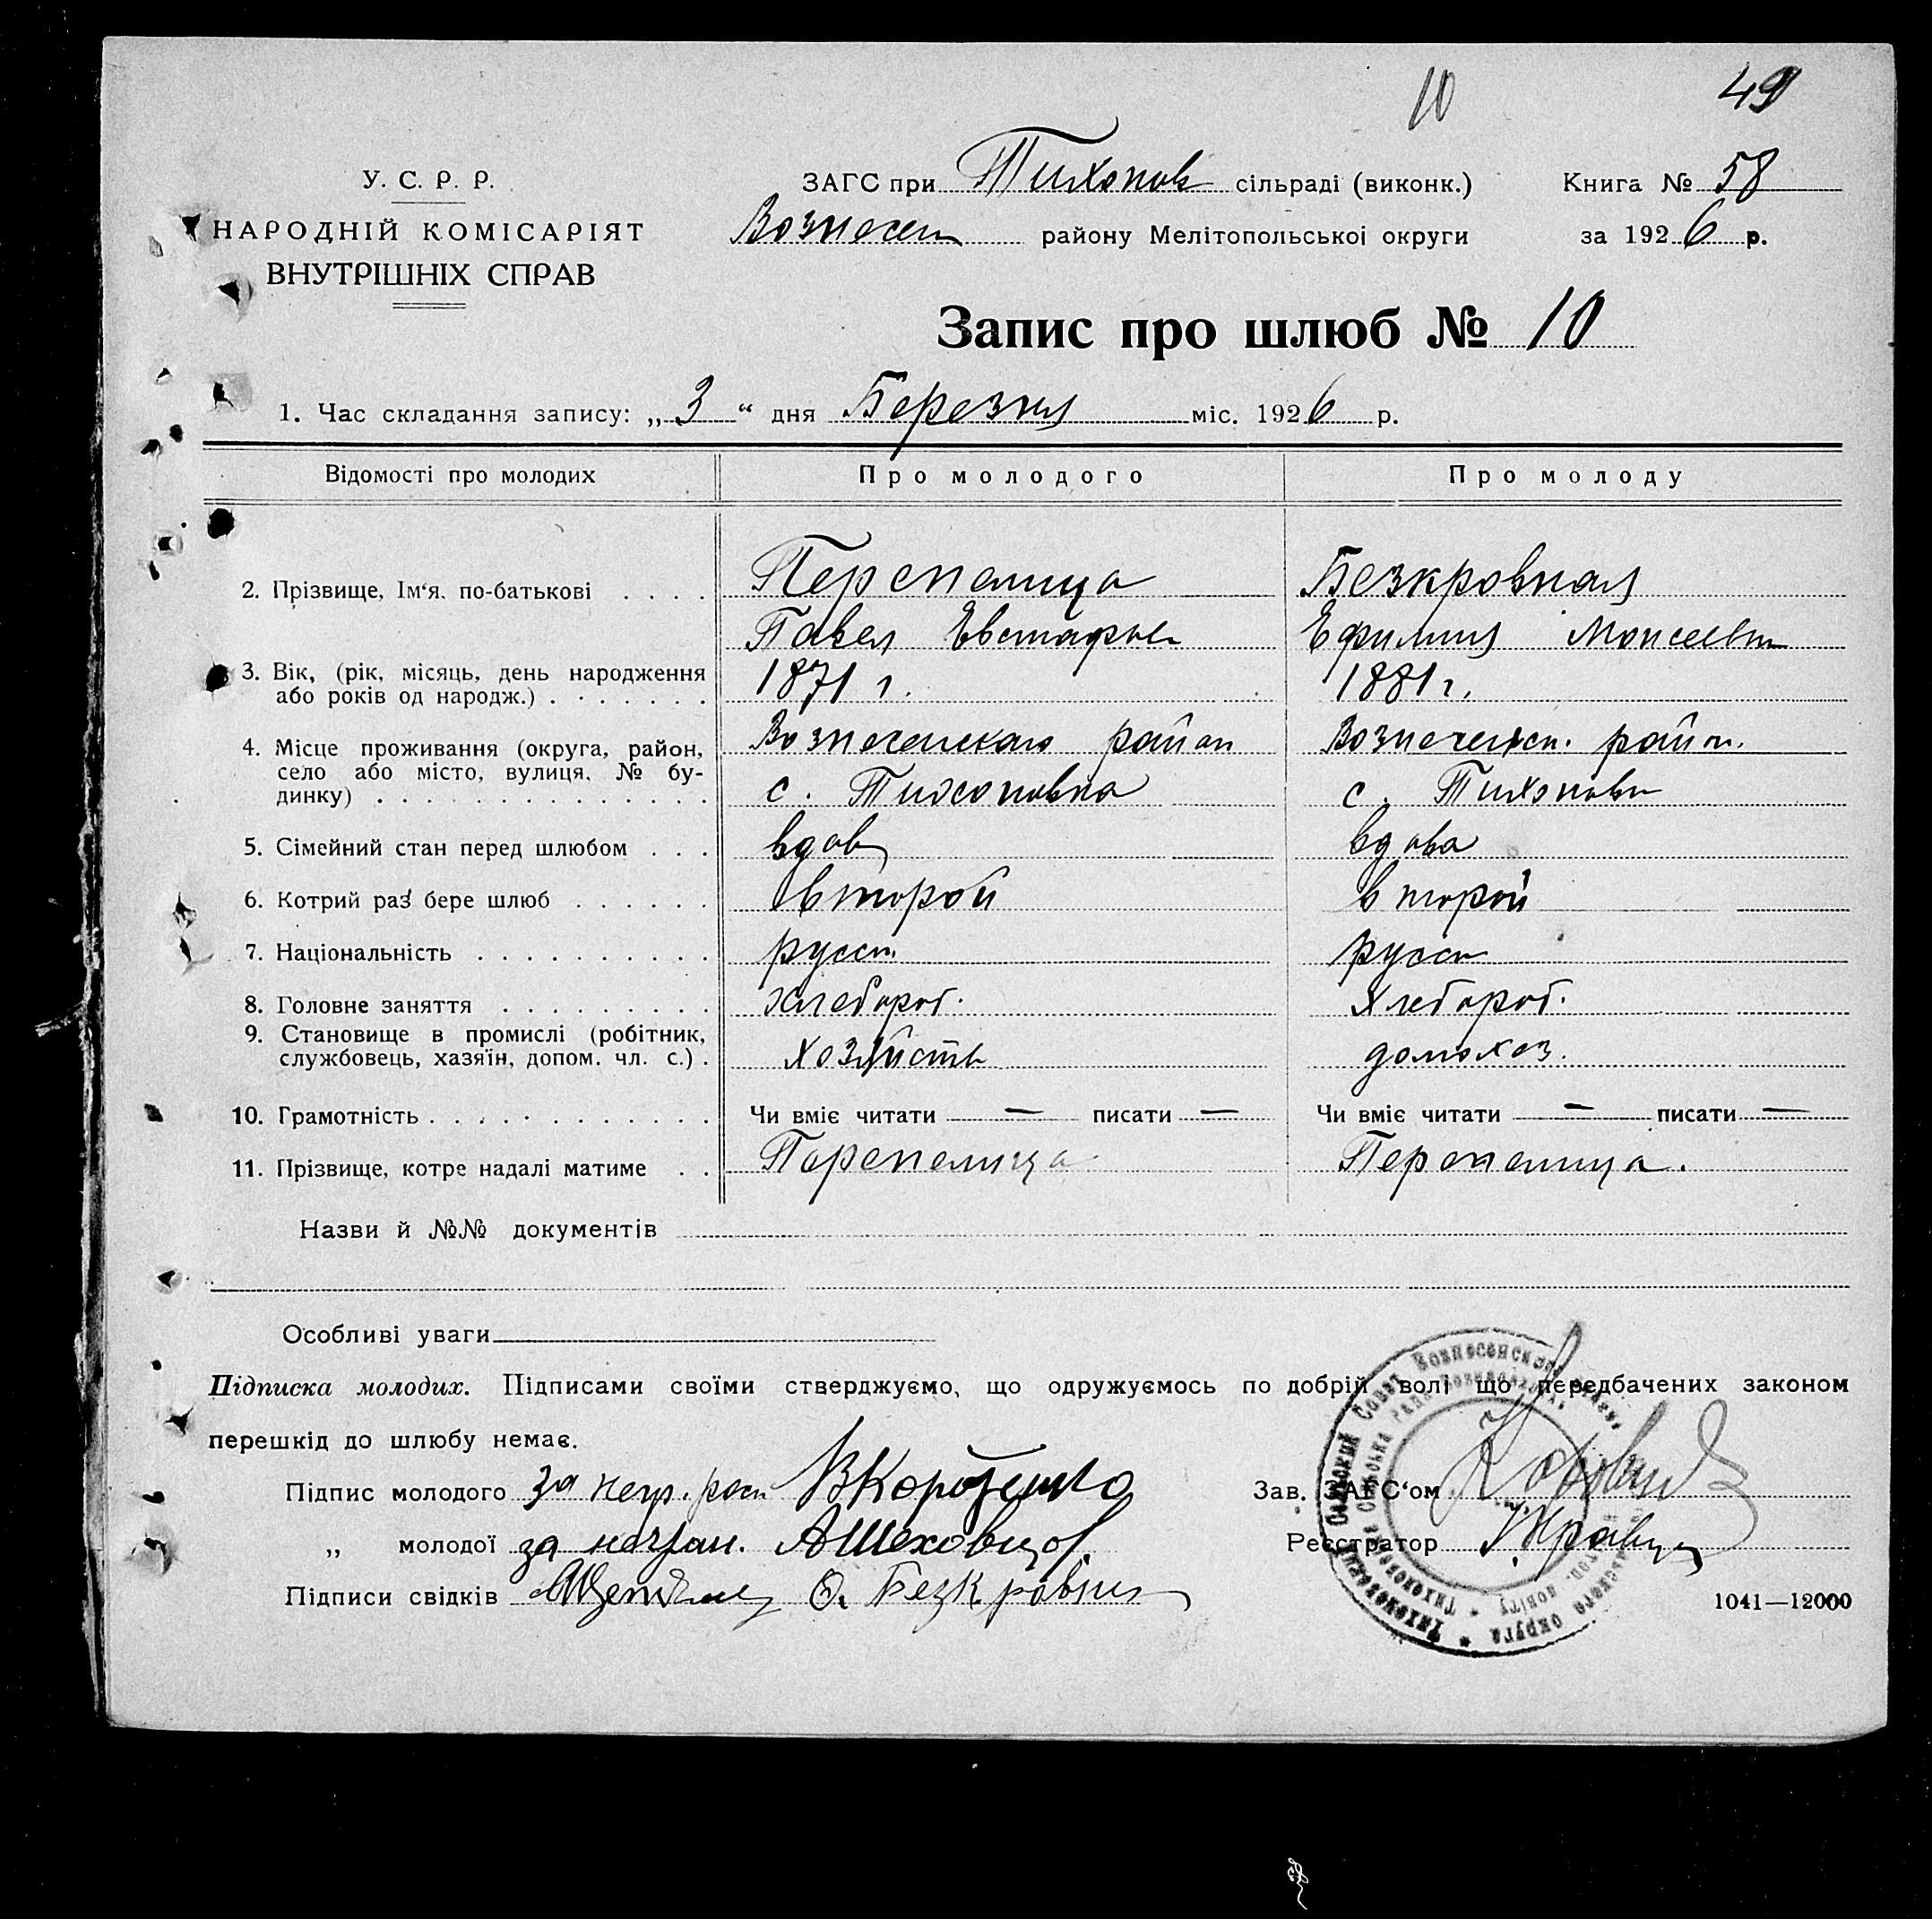 10 49
У. С. Р. Р.
НАРОДНІЙ КОМІСАРІЯТ
ВНУТРІШНІХ СПРАВ
ЗАГС при Тихонов сільраді (виконк.) Книга № 58
Вознесен району Мелітопольськоі округи за 1926 р.
Запис про шлюб № 10
1. Час складання запису: „3“ дня Березня міс. 1926 р.
Відомості про молодих Про молодого Про молоду
2. Прізвище, Ім‘я. по-батькові . . . . Перепелица Безкровная
Павел Евстафьев Ефимия Моисеевн
3. Вік, (рік, місяць, день народження або років од народж.) . . . . . . . 1871 г. 1881 г.
4. Місце проживання (округа, район, село або місто, вулиця, № будинку) . . . . . . . . . . . . . . Вознесенскаго район Вознесенск. район.
с. Тихоновка с. Тихоновк
5. Сімейний стан перед шлюбом . . . вдов вдова
6. Котрий раз бере шлюб . . . . . . второй второй
7. Національність . . . . . . . . . . русск русск
8. Головне заняття . . . . . . . . . хлебороб. хлебороб.
9. Становище в промислі (робітник, службовець, хазяїн, допом. чл. с.) . хозяйств домохоз.
10. Грамотність . . . . . . . . . . . . Чи вміє читати — писати — Чи вміє читати — писати —
11. Прізвище, котре надалі матиме . . Перепелица Перепелица.
Назви й №№ документів
Особливі уваги
Підписка молодих. Підписами своїми стверджуємо, що одружуємось по добрій волі що передбачених законом
перешкід до шлюбу немає.
Підпис молодого за негр. росп ВКоротенко Зав. ЗАГС‘ом
„ молодої за неграм. АШеховцов Реєстратор Кравец
Підписи свідків О. Безкровний 1041—12000
Тихоновский Сельский Совет Вознесенского округа
Тихоновська Сільська Рада